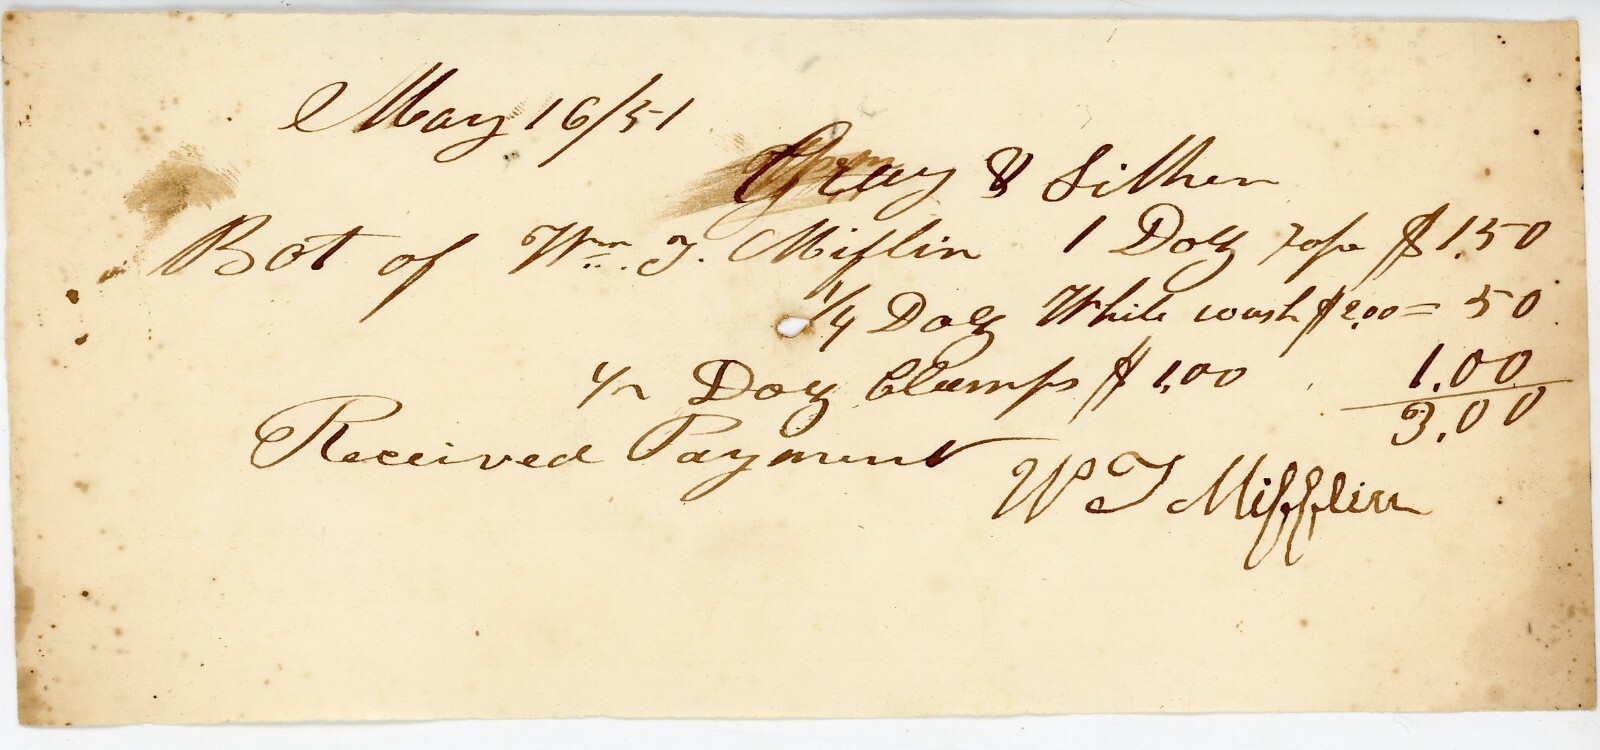 May 16/51
Gray & Silken
Bot of Wm. T. Miflin 1 Doz rope $1.50
1/4 Doz White wash $2.00 = 50
1/2 Doz Clamps $1,00 1.00
3.00
Received Payment
W T Mifflin